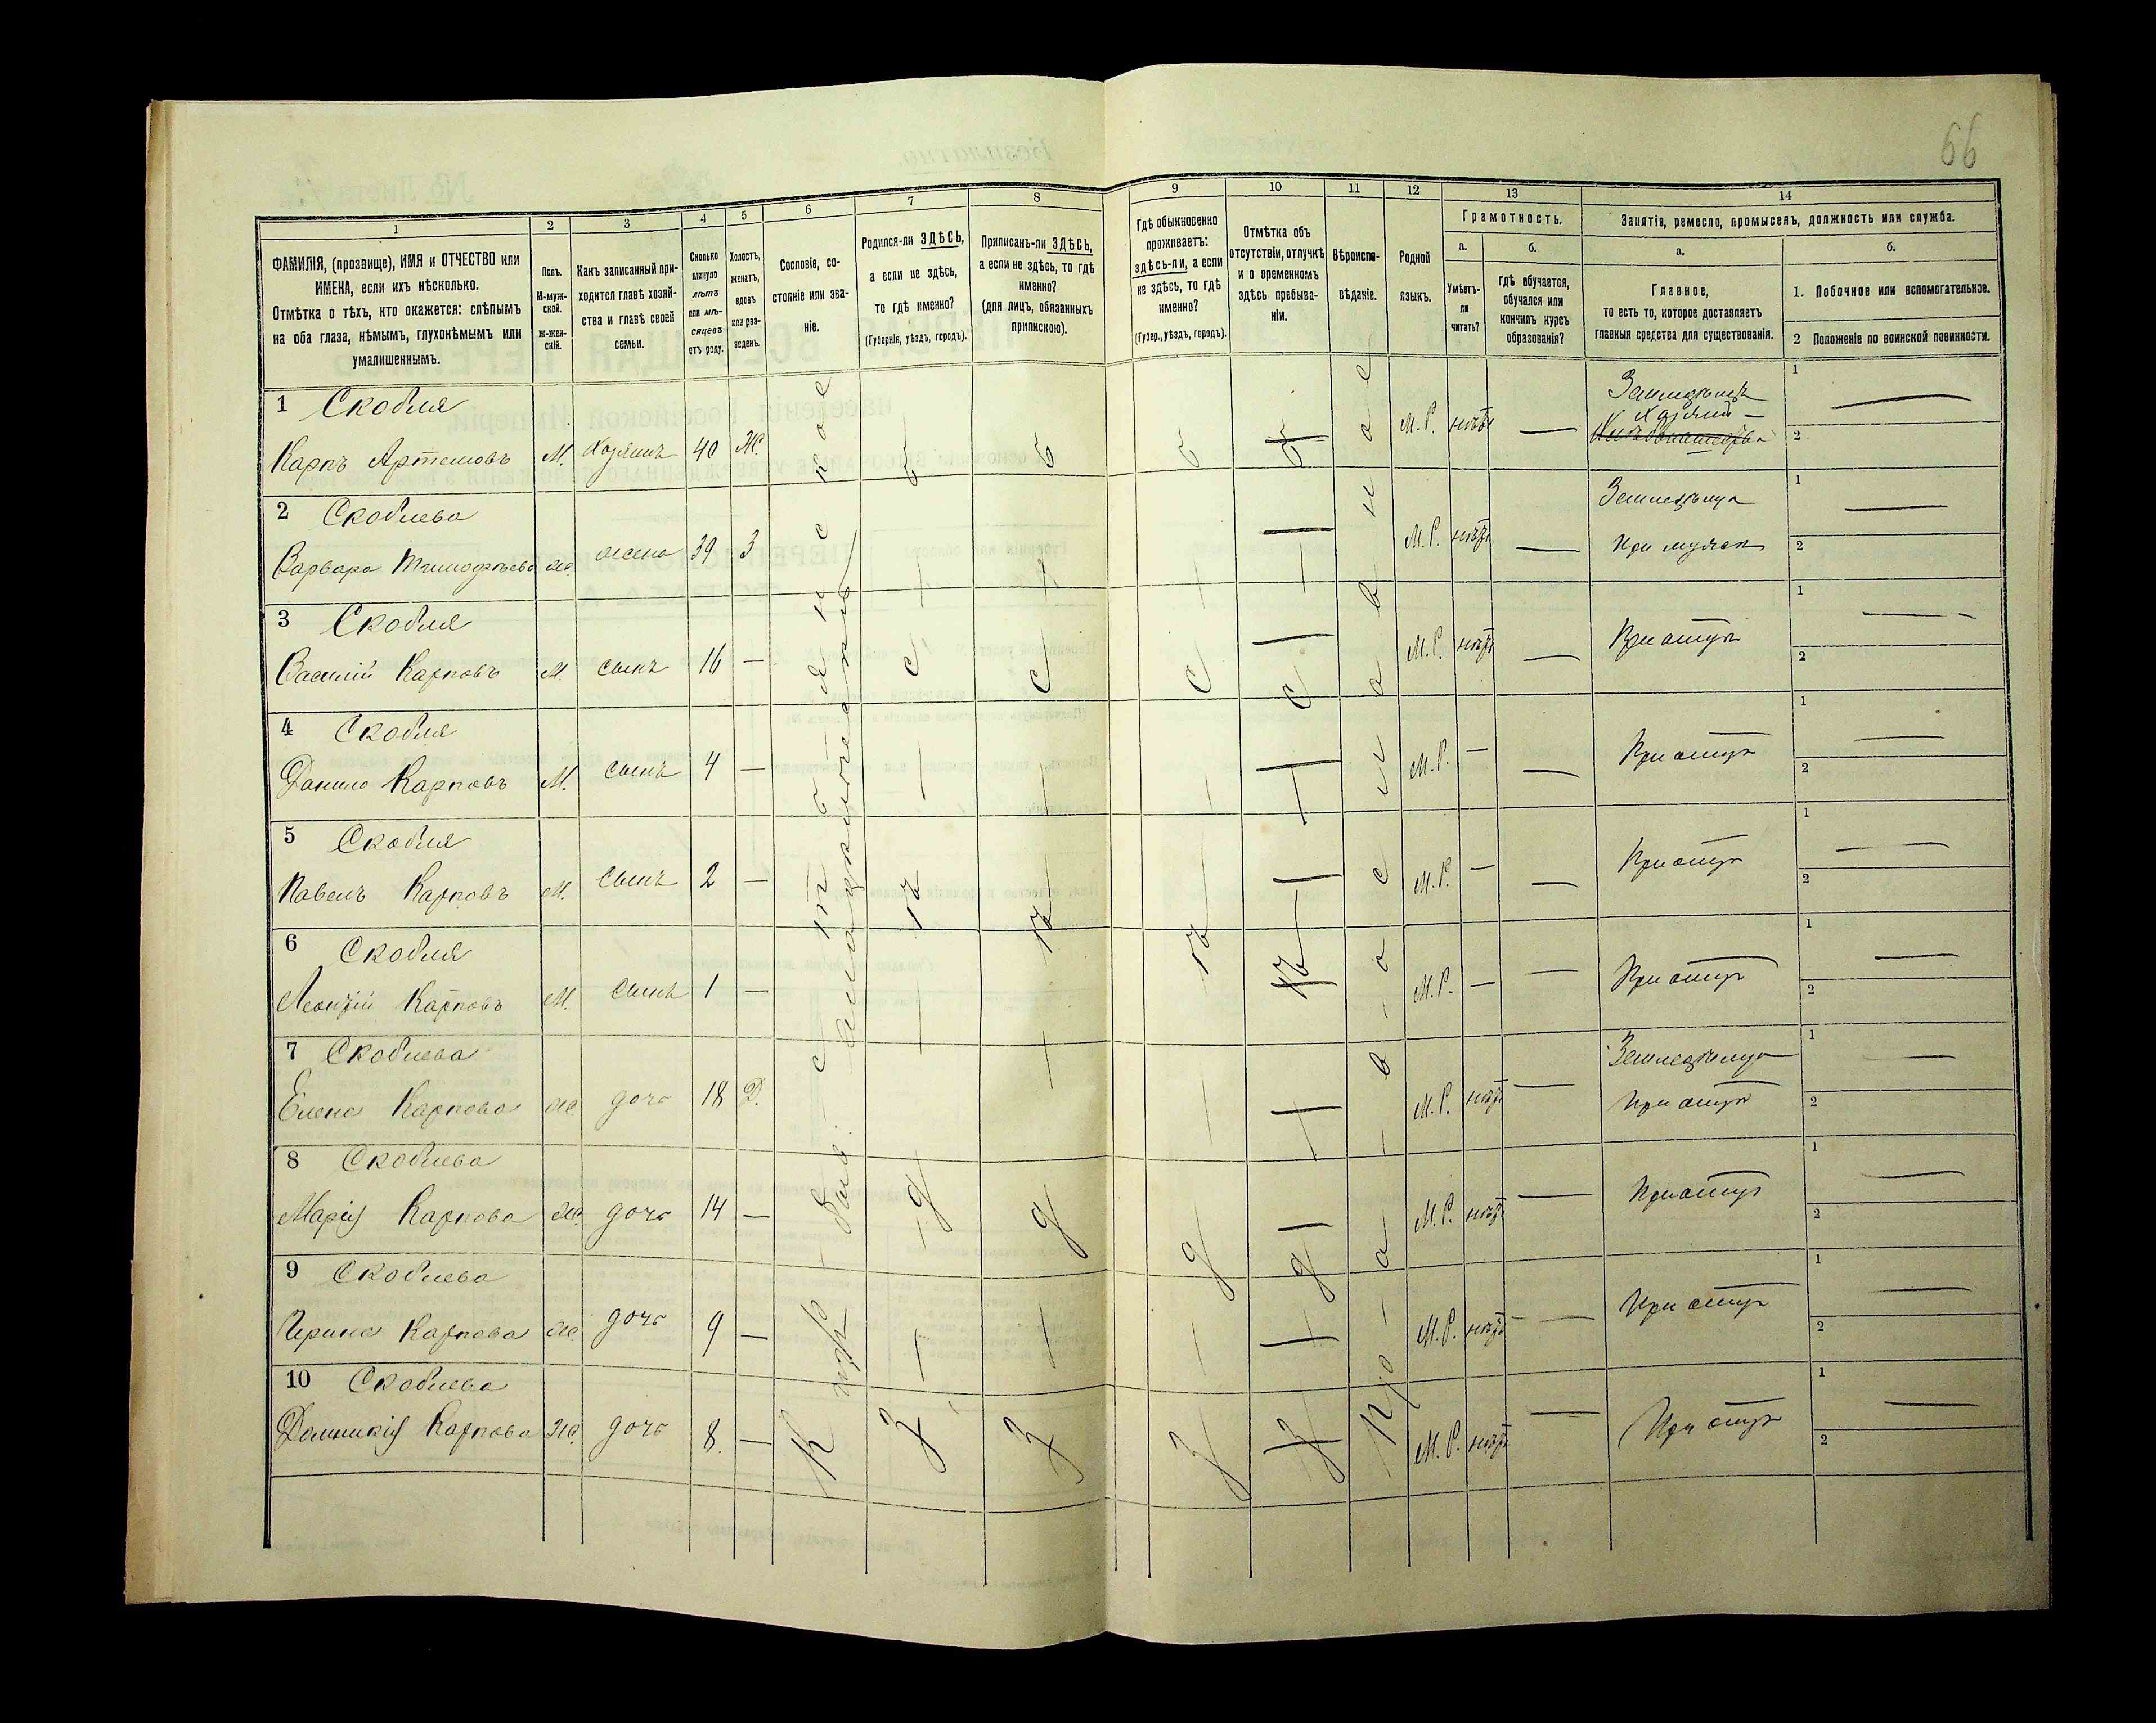 66
1 2 3 4 5 6 7 8 9 10 11 12 13 14
ФАМИЛІЯ, (прозвище), ИМЯ и ОТЧЕСТВО или
ИМЕНА, если ихъ нѣсколько.
Отмѣтка о тѣхъ, кто окажется: слѣпымъ
на оба глаза, нѣмымъ, глухонѣмымъ или
умалишеннымъ.
Полъ.
М-муж-
ской.
Ж-жен-
скій.
Какъ записанный при-
ходится главѣ хозяй-
ства и главѣ своей
семьи.
Сколько
минуло
лѣтъ
или мѣ-
сяцевъ
отъ роду.
Холостъ,
женатъ,
вдовъ
или раз-
веденъ.
Сословіе, со-
стояніе или зва-
ніе.
Родился-ли ЗДѢСЬ,
а если не здѣсь,
то гдѣ именно?
(Губернія, уѣздъ, городъ).
Приписанъ-ли ЗДѢСЬ,
а если не здѣсь, то гдѣ
именно?
(для лицъ, обязанныхъ
припискою).
Гдѣ обыкновенно
проживаетъ:
здѣсь-ли, а если
не здѣсь, то гдѣ
именно?
(Губер., уѣздъ, городъ).
Отмѣтка объ
отсутствіи, отлучкѣ
и о временномъ
здѣсь пребыва-
ніи.
Вѣроиспо-
вѣданіе.
Родной
языкъ.
Грамотность.
а.
Умѣетъ-
ли
читать?
б.
Гдѣ обучается,
обучался или
кончилъ курсъ
образованія?
Занятіе, ремесло, промыселъ, должность или служба.
а.
Главное,
то есть то, которое доставляетъ
главныя средства для существованія.
б.
1. Побочное или вспомогательное.
2 Положеніе по воинской повинности.
1 Скобля
Карпъ Артемовъ М. хозяинъ 40 Ж. М.Р. нѣтъ —
Земледѣлецъ
хозяинъ —
1 —
2
2 Скоблева
Варвара Тимофѣева ж. жена 39 З М.Р. нѣтъ —
Земледѣлица
При мужѣ
1 —
2
3 Скобля
Василій Карповъ М. сынъ 16 — М.Р. нѣтъ — При отцѣ
1 —
2
4 Скобля
Данило Карповъ М. сынъ 4 — М.Р. — — При отцѣ
1 —
2
5 Скобля
Павелъ Карповъ М. сынъ 2 — М.Р. — — При отцѣ
1 —
2
6 Скобля
Леонтій Карповъ М. сынъ 1 — М.Р. — — При отцѣ
1 —
2
7 Скоблева
Елена Карпова ж. дочь 18 Д. М.Р. нѣтъ —
Земледѣлица
При отцѣ
1 —
2
8 Скоблева
Марія Карпова ж. дочь 14 — М.Р. нѣтъ — При отцѣ
1 —
2
9 Скоблева
Ирина Карпова ж. дочь 9 — М.Р. нѣтъ — При отцѣ
1 —
2
10 Скоблева
Домникія Карпова ж. дочь 8. — М.Р. нѣтъ — При отцѣ
1 —
2
здѣсь
здѣсь
здѣсь
Православное